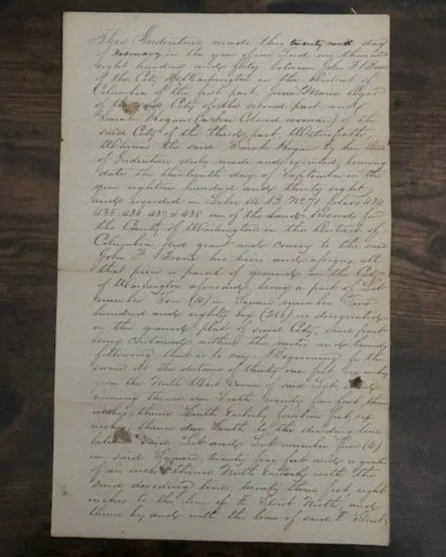 This Indenture made this twenty ninth day
of February in the year of our Lord one thousand
eight hundred and fifty between John F. Boone
of the City of Washington in the District of
Columbia of the first part,
of City of the second part and
Sarah Hogan (a free Colored woman) of the
said City of the third part, Witnesseth,
Whereas the said Sarah Hogan by her Deed
of Indenture duly made and executed, bearing
date the thirteenth day of September in the
year eighteen hundred and thirty eight
and recorded in Liber W.B. No. 71 folios 434
435, 436, 437 & 438 one of the Land Records for
the County of Washington in the District of
Columbia did grant and convey to the said
John F. Boone his heirs and assigns, all
that piece or parcel of ground in the City
of Washington aforesaid, being a part of Lot
number in Square number Two
hundred and eighty Six (286) as designated
on the ground plat of said City, said part
being contained within the metes and bounds
following that is to say: Beginning for the
same at the distance of thirty one feet six inches
from the North West Corner of said Lot, and
running thence due South twenty four feet three
inches; thence South Easterly fourteen feet six
inches; thence due South to the dividing line
between said Lot and Lot number
in said Square, twenty five feet and a quarter
of an inch; thence North Easterly with the
said dividing line, twenty three feet, eight
inches to the line of Street North, and
thence by and with the line of said Street